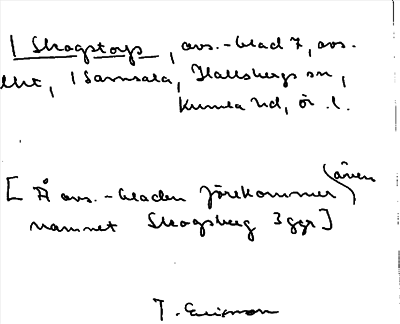 | Skogstorp, avs.-blad 7, avs.
| Samsala, Hallsbergs sn,
Kumla hd, ör. l.
[ Å avs.-bladen förekommer även
namnet Skogsberg 3 ggr ]